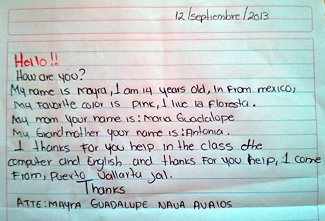 12/septiembre/2013
Hello!!
How are you?
My name is Mayra, I am 14 years old, In From mexico,
My Favorite color is Pink, I live la Floresta.
My mom your name is: Maria Guadalupe
My Grandmother your name is: Antonia.
I thanks For you help in the class the
computer and English and thanks For you help, I come
From, Puerto Vallarta jal.
Thanks
ATTE: MAYRA GUADALUPE NAVA AVALOS